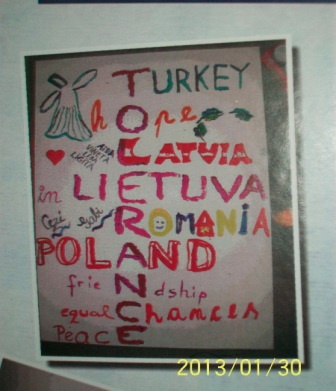 TURKEY
hOpe
LATVIA
in LIETUVA
ROMANIA
POLAND
frieNdship
equal Chances
PEacE
2013/01/30